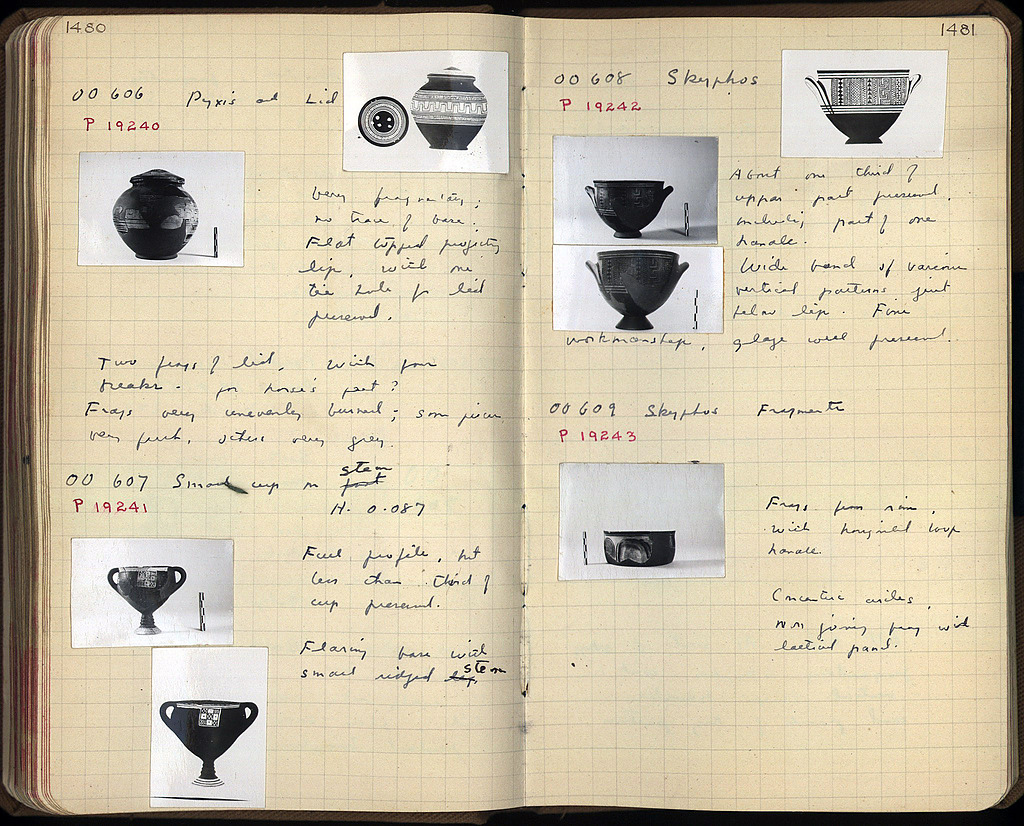 1480
OO 606 Pyxis and Lid
P 19240
Very fragmentary;
no trace of base.
Flat topped projecting
lip, with one
tie hole for lid
preserved.
Two frags of lid, with four
breaks - for horse's feet?
Frags very unevenly burned; some pieces
very fresh, others very grey.
OO 607 Small cup on foot stem
P 19241
H. 0.087
Full profile, but
less than third of
cup preserved.
Flaring base with
small ridged stem
1481
OO 608 Skyphos
P 19242
About one third of
upper part preserved,
including part of one
handle.
Wide band of various
vertical patterns just
below lip. Fine
workmanship, glaze well preserved.
OO 609 Skyphos Fragments
P 19243
Frags from rim,
with horizontal loop
handle.
Concentric circles,
non joining frag with
vertical panel.